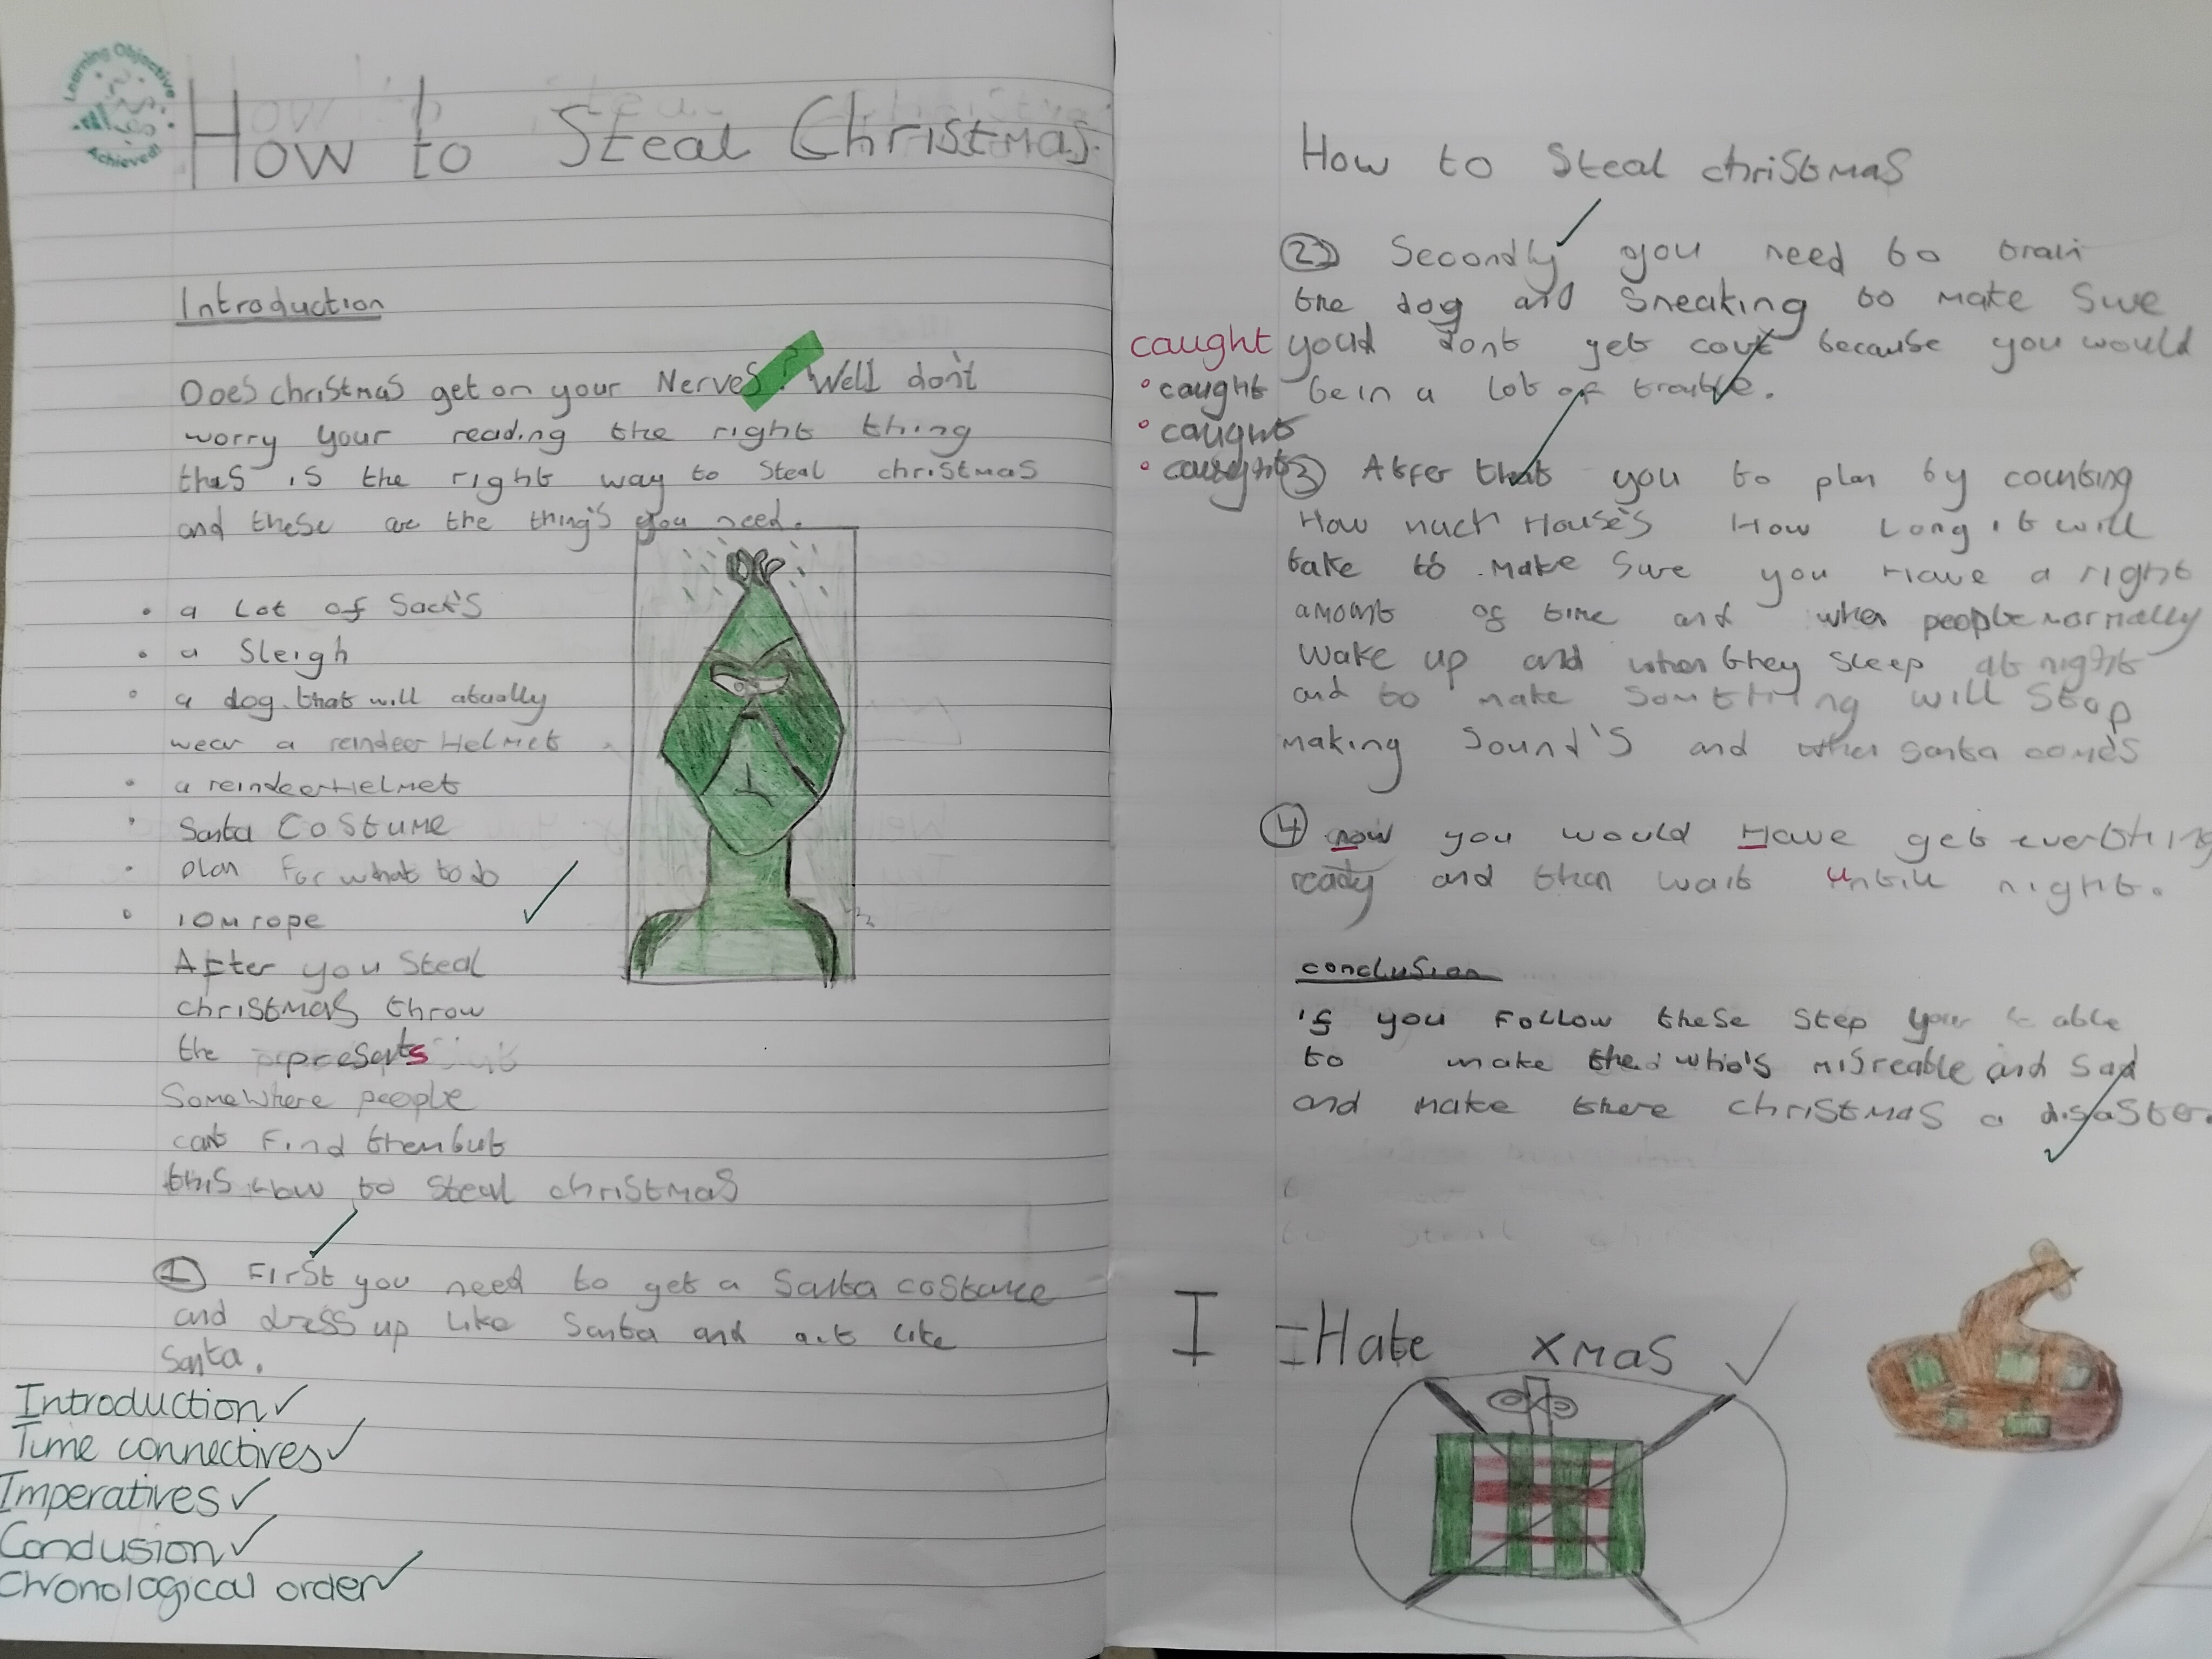 Learning Objective
Achieved!
How to Steal Christmas.
Introduction
Does christmas get on your Nerves? Well don't
worry your reading the right thing
this is the right way to steal christmas
and these are the thing's you need.
• a Lot of Sack's
• a Sleigh
• a dog that will atually
wear a reindeer Helmet
• a reindeer Helmet
• Santa Costume
• plan for what to do
• 10m rope
After you Steal
christmas throw
the presents
Somewhere people
cant find them but
this How to steal christmas
1 First you need to get a Santa costume
and dress up like Santa and act like
Santa.
Introduction ✓
Time connectives ✓
Imperatives ✓
Conclusion ✓
Chronological order ✓
How to Steal christmas
2 Secondly you need to train
the dog and Sneaking to make Sure
you'd dont get cout because you would
be in a lot of trouble.
caught
• caught
• caught
• caught
3 After that you to plan by counting
How much House's How Long it will
take to make Sure you Have a right
amount of time and when people normally
Wake up and when they sleep at night
and to make Something will Stop
making Sound's and when santa come's
4 now you would Have get everthing
ready and then wait untill night.
conclusion
if you follow these step your be able
to make the who's misreable and sad
and make there christmas a disaster.
I Hate xmas